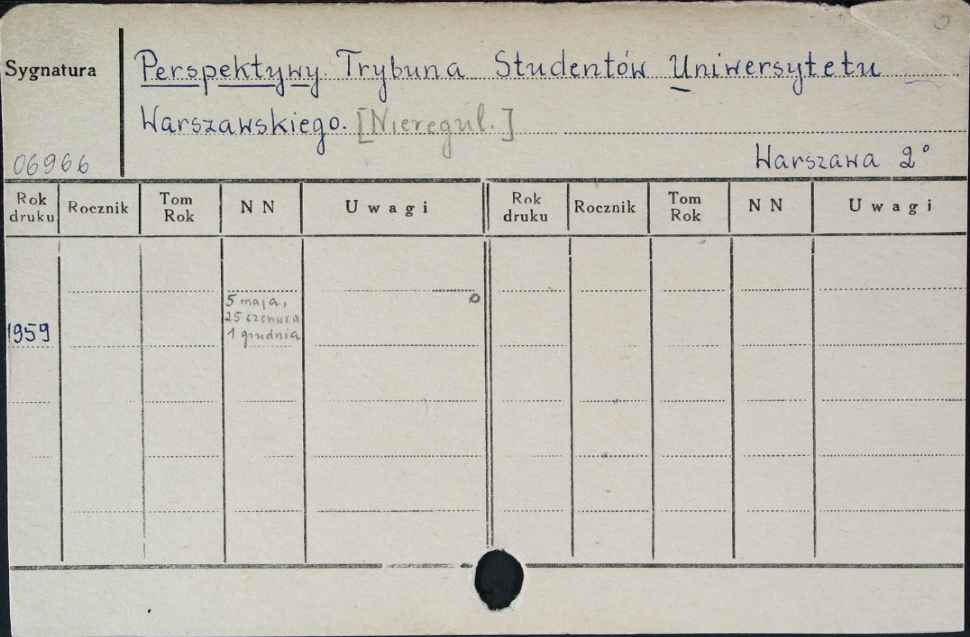 Sygnatura
Perspektywy. Trybuna Studentów Uniwersytetu
Warszawskiego. [Nieregul.]
06966
Warszawa 2°
Rok druku Rocznik Tom Rok N N Uwagi Rok druku Rocznik Tom Rok N N Uwagi
5 maja,
25 czerwca
1959 1 grudnia